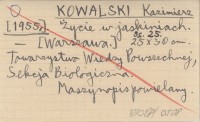 KOWALSKI Kazimierz
[1955] Życie w jaskiniach.
— [Warszawa.] sc. 25.
25 x 30 cm.
Towarzystwo Wiedzy Powszechnej,
Sekcja Biologiczna.
Maszynopis powielany.